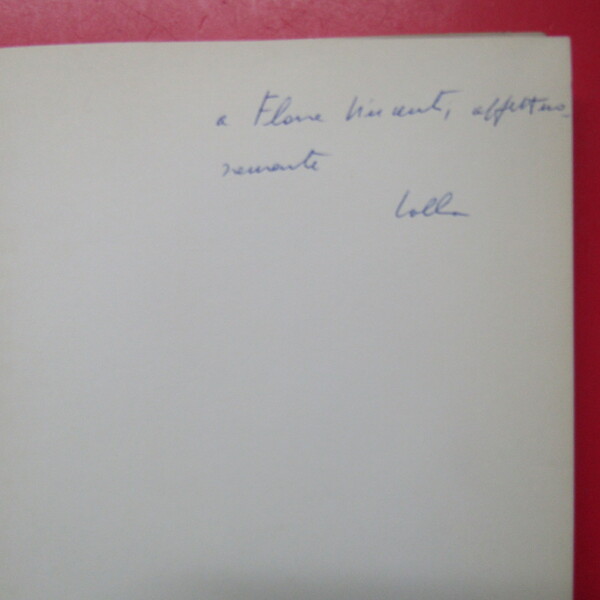 a Fiore Vincenti, affettuo-
samente
Lalla